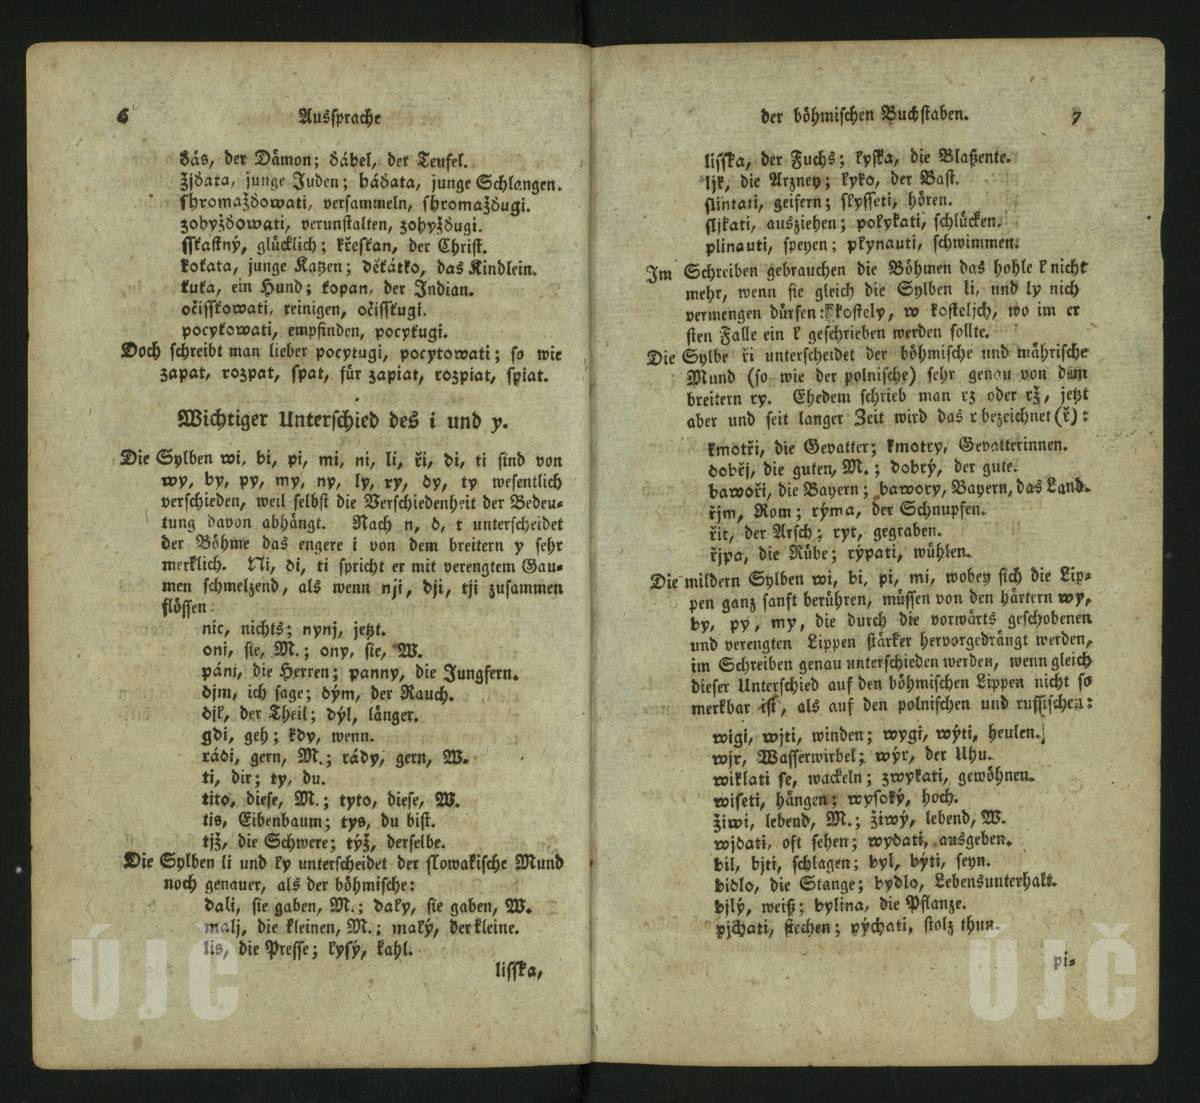 6
Aussprache
ďás, der Dämon; ďábel, der Teufel.
žjďata, junge Juden; háďata, junge Schlangen.
shromažďowati, versammeln, shromažďugi.
zohyžďowati, verunstalten, zohyžďugi.
ssťastný, glücklich; křesťan, der Christ.
koťata, junge Katzen; děťátko, das Kindlein.
ťuťa, ein Hund; ťopan, der Indian.
očissťowati, reinigen, očissťugi.
pocyťowati, empfinden, pocyťugi.
Doch schreibt man lieber pocytugi, pocytowati; so wie
zapat, rozpat, spat, für zapiat, rozpiat, spiat.
Wichtiger Unterschied des i und y.
Die Sylben wi, bi, pi, mi, ni, li, ři, di, ti sind von
wy, by, py, my, ny, ly, ry, dy, ty wesentlich
verschieden, weil selbst die Verschiedenheit der Bedeu-
tung davon abhängt. Nach n, d, t unterscheidet
der Böhme das engere i von dem breitern y sehr
merklich. Ni, di, ti spricht er mit verengtem Gau-
men schmelzend, als wenn nji, dji, tji zusammen
flössen:
nic, nichts; nynj, jetzt.
oni, sie, M.; ony, sie, W.
páni, die Herren; panny, die Jungfern.
djm, ich sage; dým, der Rauch.
djl, der Theil; dýl, länger.
gdi, geh; kdy, wenn.
rádi, gern, M.; rády, gern, W.
ti, dir; ty, du.
tito, diese, M.; tyto, diese, W.
tis, Eibenbaum; tys, du bist.
tjž, die Schwere; týž, derselbe.
Die Sylben li und ły unterscheidet der slowakische Mund
noch genauer, als der böhmische:
dali, sie gaben, M.; dały, sie gaben, W.
malj, die kleinen, M.; małý, der kleine.
lis, die Presse; łysý, kahl.
lisska,
der böhmischen Buchstaben.
7
lisska, der Fuchs; łyska, die Blaßente.
ljk, die Arzney; łyko, der Bast.
slintati, geifern; słysseti, hören.
sljkati, ausziehen; połykati, schlücken.
plinauti, speyen; płynauti, schwimmen.
Im Schreiben gebrauchen die Böhmen das hohle ł nicht
mehr, wenn sie gleich die Sylben li, und ly nich
vermengen dürfen: kostely, w kosteljch, wo im er
sten Falle ein ł geschrieben werden sollte.
Die Sylbe ři unterscheidet der böhmische und mährische
Mund (so wie der polnische) sehr genau von dem
breitern ry. Ehedem schrieb man rz oder rž, jetzt
aber und seit langer Zeit wird das r bezeichnet (ř):
kmotři, die Gevatter; kmotry, Gevatterinnen.
dobřj, die guten, M.; dobrý, der gute.
bawoři, die Bayern; bawory, Bayern, das Land.
řjm, Rom; rýma, der Schnupfen.
řit, der Arsch; ryt, gegraben.
řjpa, die Rübe; rýpati, wühlen.
Die mildern Sylben wi, bi, pi, mi, wobey sich die Lip-
pen ganz sanft berühren, müssen von den härtern wy,
by, py, my, die durch die vorwärts geschobenen
und verengten Lippen stärker hervorgedrängt werden,
im Schreiben genau unterschieden werden, wenn gleich
dieser Unterschied auf den böhmischen Lippen nicht so
merkbar ist, als auf den polnischen und russischen:
wigi, wjti, winden; wygi, wýti, heulen.
wjr, Wasserwirbel; wýr, der Uhu.
wiklati se, wackeln; zwykati, gewöhnen.
wiseti, hängen; wysoký, hoch.
žiwi, lebend, M.; žiwý, lebend, W.
wjdati, oft sehen; wydati, ausgeben.
bil, bjti, schlagen; byl, býti, seyn.
bidlo, die Stange; bydlo, Lebensunterhalt.
bjlý, weiß; bylina, die Pflanze.
pjchati, stechen; pýchati, stolz thun.
pi-
ÚJČ
ÚJČ